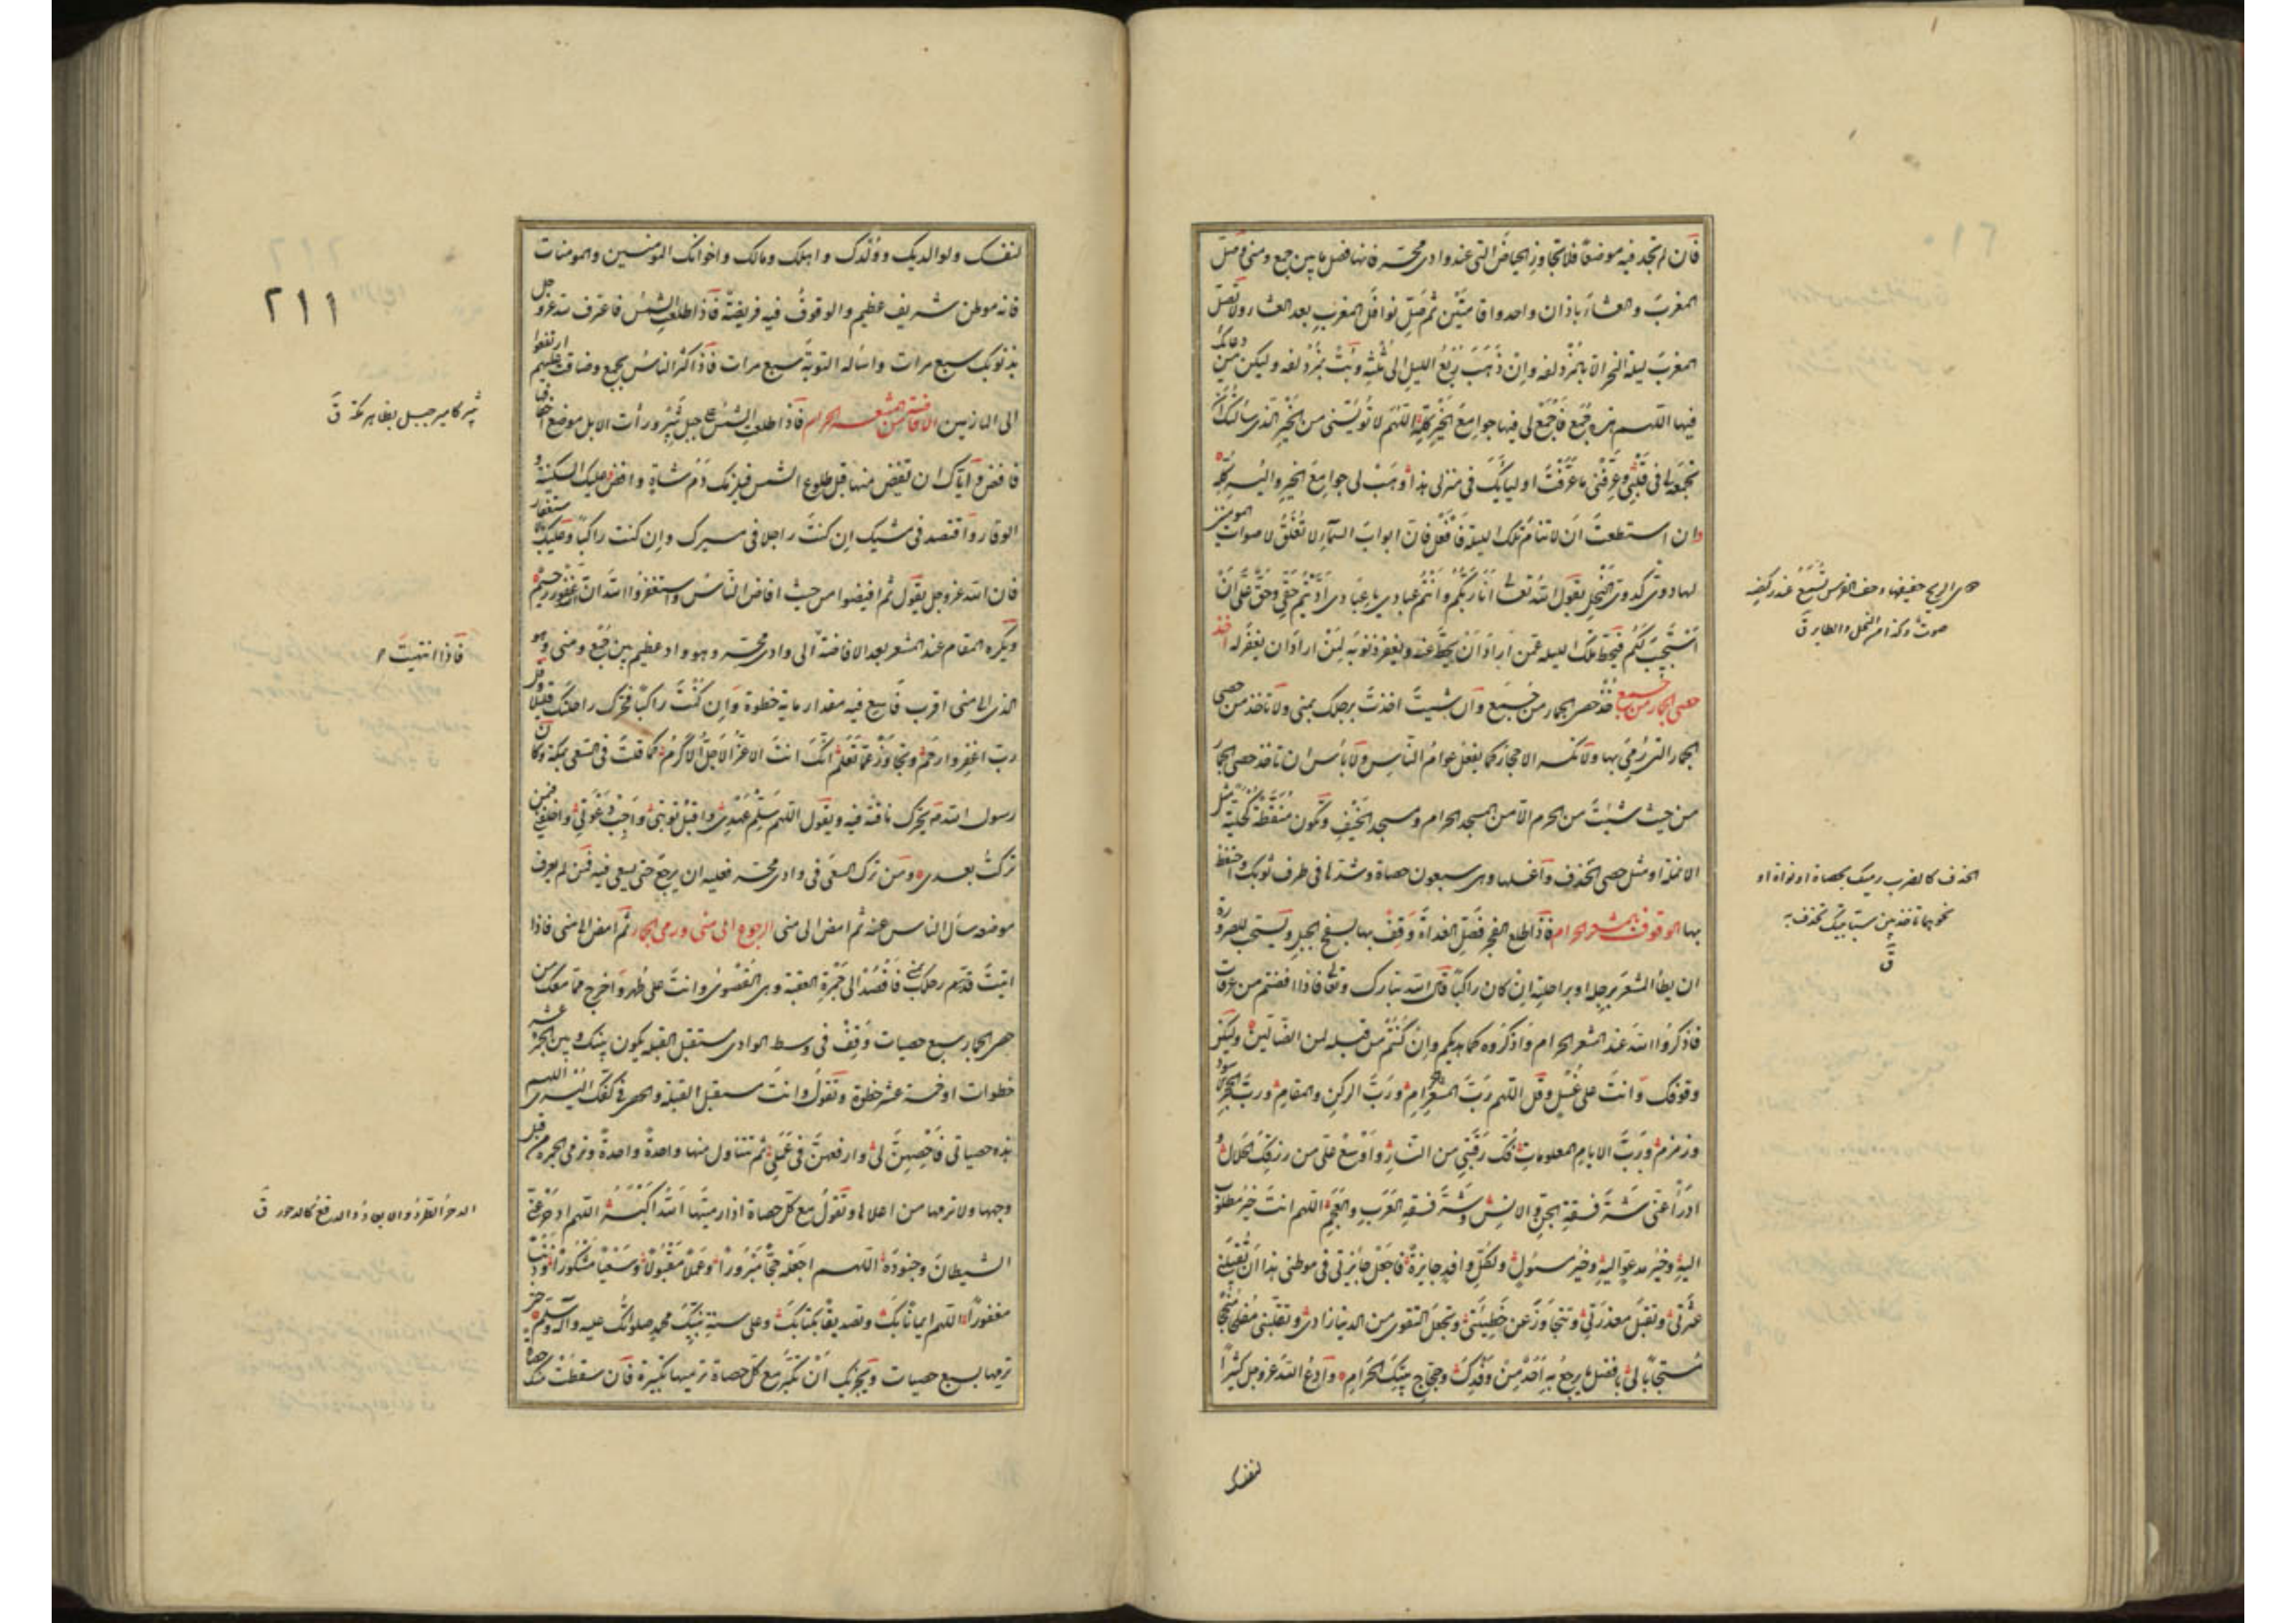 فان لم تجد فيه موضعا فلا تجاوز الحياض التى عند وادى محسر فانها فصل ما بين جمع ومنى وصل
المغرب والعشاء باذان واحد واقامتين ثم صل نوافل المغرب بعد العشاء ولا تصل
المغرب ليلة النحر الا بالمزدلفة وان ذهب ربع الليل الى ثلثه وبت بمزدلفة وليكن من دعائك
فيها اللهم هذه جمع فاجمع لى فيها جوامع الخير كله اللهم لا تؤيسنى من الخير الذى سألتك ان
تجمعه لى فى قلبى وعرفنى ما عرفت اولياءك فى منزلى هذا وهب لى جوامع الخير واليسر كله
وان استطعت ان لا تنام تلك الليلة فافعل فان ابواب السماء لا تغلق لاصوات المؤمنين
لها دوى كدوى النحل يقول الله تعالى انا ربكم وانتم عبادى يا عبادى اديتم حقى وحق على ان
استجيب لكم فيحط تلك الليلة عمن اراد ان يحط عنه ويغفر ذنوبه لمن اراد ان يغفر له اخذ
حصى الجمار من جمع خذ حصى الجمار من جمع وان شئت اخذت برحلك بمنى ولا تاخذ من حصى
الجمار التى رمى بها ولا تكسر الاحجار كما يفعل عوام الناس ولا باس ان تاخذ حصى الجمار
من حيث شئت من الحرم الا من المسجد الحرام ومسجد الخيف وتكون منقطة كحلية مثل
الانملة او مثل حصى الخذف واغسلها وهى سبعون حصاة وشدها فى طرف ثوبك واحتفظ
بها الوقوف بالمشعر الحرام فاذا طلع الفجر فصل الغداة وقف بها بسفح الجبل ويستحب للصرورة
ان يطأ المشعر برجله او براحلته ان كان راكبا قال الله تبارك وتعالى فاذا افضتم من عرفات
فاذكروا الله عند المشعر الحرام واذكروه كما هديكم وان كنتم من قبله لمن الضالين وليكن
وقوفك وانت على غسل وقل اللهم رب المشعر الحرام ورب الركن والمقام ورب الحجر الاسود
وزمزم ورب الايام المعلومات فك رقبتى من النار واوسع على من رزقك الحلال و
ادرأ عنى شر فسقة الجن والانس وشر فسقة العرب والعجم اللهم انت خير مطلوب
اليه وخير مدعو اليه وخير مسئول ولكل وافد جايزة فاجعل جايزتى فى موطنى هذا ان تقيلنى
عثرتى وتقبل معذرتى وتتجاوز عن خطيئتى وتجعل التقوى من الدنيا زادى وتقلبنى مفلحا منجحا
مستجابا لى بافضل ما يرجع به احد من وفدك وحجاج بيتك الحرام وادع الله عز وجل كثيرا
لنفسك
هى الريح حفيفها وحف الفرس تسمع عند ركضه
صوت وكذا من النحل والطاير ق
الخذف كالضرب رميك بحصاة او نواة او
نحوهما تاخذ بين سبابتيك تخذف به
ق
لنفسك ولوالديك وولدك واهلك ومالك واخوانك المؤمنين والمومنات
فانه موطن شريف عظيم والوقوف فيه فريضة فاذا طلعت الشمس فاعترف لله عز وجل
بذنوبك سبع مرات واسأله التوبة سبع مرات فاذا كثر الناس بجمع وضاقت عليهم ارتفعوا
الى المازمين الافاضة من المشعر الحرام فاذا طلعت الشمس على جبل ثبير ورأت الابل موضع اخفافها
فافض واياك ان تفيض منها قبل طلوع الشمس فيلزمك دم شاة وافض وعليك السكينة و
الوقار واقتصد فى مشيك ان كنت راجلا فى مسيرك وان كنت راكبا وعليك بالاستغفار
فان الله عز وجل يقول ثم افيضوا من حيث افاض الناس واستغفروا الله ان الله غفور رحيم
ويكره المقام عند المشعر بعد الافاضة الى وادى محسر وهو واد عظيم بين جمع ومنى وهو
الذى الى منى اقرب فاسع فيه مقدار ماية خطوة وان كنت راكبا فحرك راحلتك قليلا وقل
رب اغفر وارحم وتجاوز عما تعلم انك انت الاعز الاجل الاكرم كما قلت فى السعى بمكة وكان
رسول الله ص يحرك ناقته فيه ويقول اللهم سلم عهدى واقبل توبتى واجب دعوتى واخلفنى فيمن
تركت بعدى ومن ترك السعى فى وادى محسر فعليه ان يرجع حتى يسعى فيه فمن لم يعرف
موضعه سأل الناس عنه ثم امض الى منى الرجوع الى منى ورمى الجمار ثم امض الى منى فاذا
اتيت قدم رحلك بمنى فاقصد الى جمرة العقبة وهى القصوى وانت على طهر واخرج مما معك من
حصى الجمار سبع حصيات وقف فى وسط الوادى مستقبل القبلة يكون بينك وبين الجمرة عشر
خطوات او خمسة عشر خطوة وتقول وانت مستقبل القبلة والحصى فى كفك اليسرى اللهم
هذه حصياتى فاحصهن لى وارفعهن فى عملى ثم تتناول منها واحدة واحدة وترمى الجمرة من قبل
وجهها ولا ترمها من اعلاها وتقول مع كل حصاة اذا رميتها الله اكبر اللهم ادحر عنى
الشيطان وجنوده اللهم اجعله حجا مبرورا وعملا مقبولا وسعيا مشكورا وذنبا
مغفورا اللهم ايمانا بك وتصديقا بكتابك وعلى سنة نبيك محمد صلواتك عليه وآله وسلم حتى
ترميها بسبع حصيات ويجزيك ان تكبر مع كل حصاة ترميها تكبيرة فان سقطت منك حصاة
٢١١
ثبير كامير جبل بظاهر مكة ق
فاذا انتهيت
الدحر الطرد والابعاد والدفع كالدحور ق